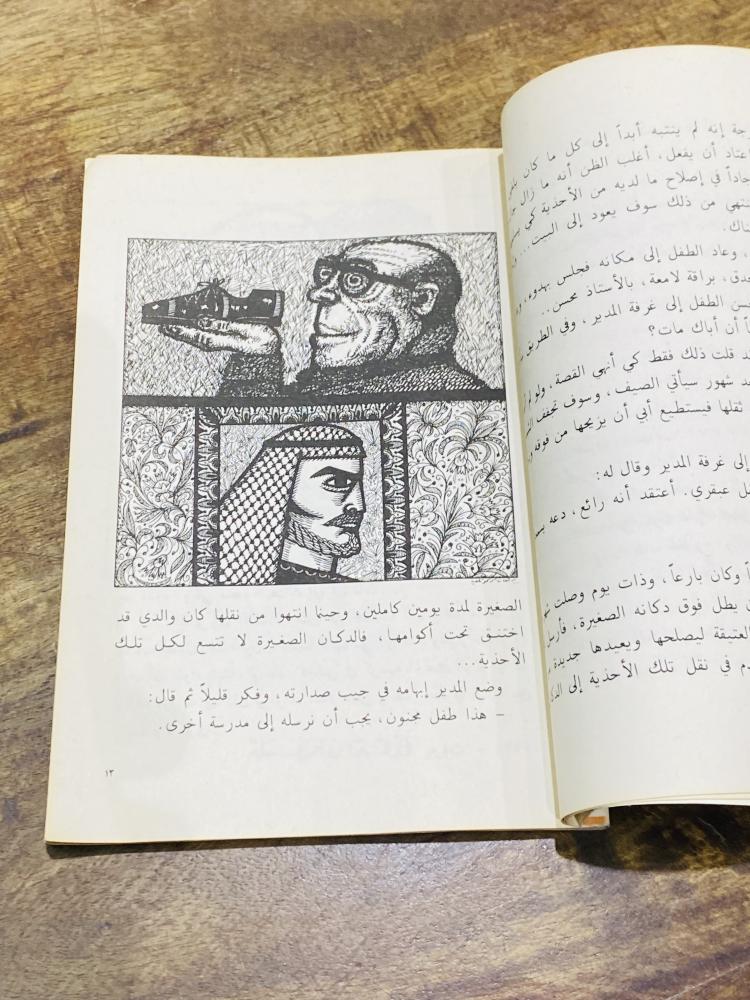 إنه لم ينتبه أبداً إلى كل ما كان
اعتاد أن يفعل، أغلب الظن أنه ما زال
جاداً في إصلاح ما لديه من الأحذية كي
من ذلك سوف يعود إلى البيت...
وعاد الطفل إلى مكانه فجلس بهدوء،
براقة لامعة، بالأستاذ محسن..
الطفل إلى غرفة المدير، وفي الطريق
أن أباك مات؟
قلت ذلك فقط كي أنهي القصة، ولو لم
شهور سيأتي الصيف، وسوف تجفف
ثقلها فيستطيع أبي أن يزيحها من فوقه
إلى غرفة المدير وقال له:
عبقري. أعتقد أنه رائع، دعه
وكان بارعاً، وذات يوم وصلت
يطل فوق دكانه الصغيرة، فأرسل
العتيقة ليصلحها ويعيدها جديدة
في نقل تلك الأحذية إلى
الصغيرة لمدة يومين كاملين، وحينما انتهوا من نقلها كان والدي قد
اختنق تحت أكوامها، فالدكان الصغيرة لا تتسع لكل تلك
الأحذية...
وضع المدير إبهامه في جيب صدارته، وفكر قليلاً ثم قال:
- هذا طفل مجنون، يجب أن نرسله إلى مدرسة أخرى.
١٣